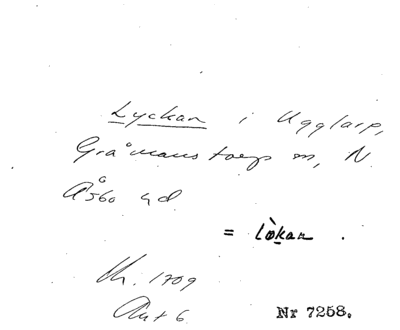 Lyckan i Ugglarp,
Gråmanstorp sn, N.
Åsbo hd
= Lòkan .
Kh. 1709
Nr 7258.